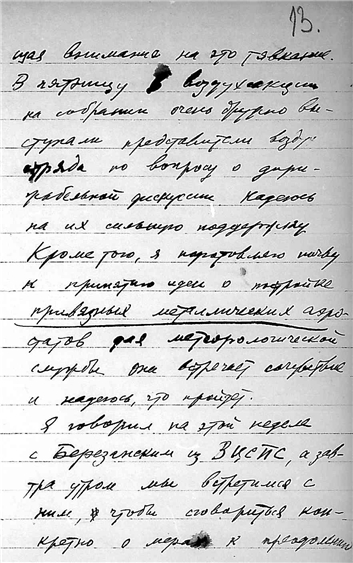 13.
щая внимание на это тявкание.
В пятницу в воздухсекции
на собрании очень бурно вы-
ступали представители возду-
отряда по вопросу о дири-
жабельной дискуссии. Надеюсь
на их сильную поддержку
Кроме того, я подготовляю почву
к принятию идеи о постройке
привязных металлических аэро-
статов для метеорологической
службы она встречает сочувствие
и надеюсь, что пройдет.
Я говорил на этой неделе
с Березанским из ВЦСПС, а зав-
тра утром мы встретимся с
ним, чтобы сговориться кон-
кретно о мерах к преодолению